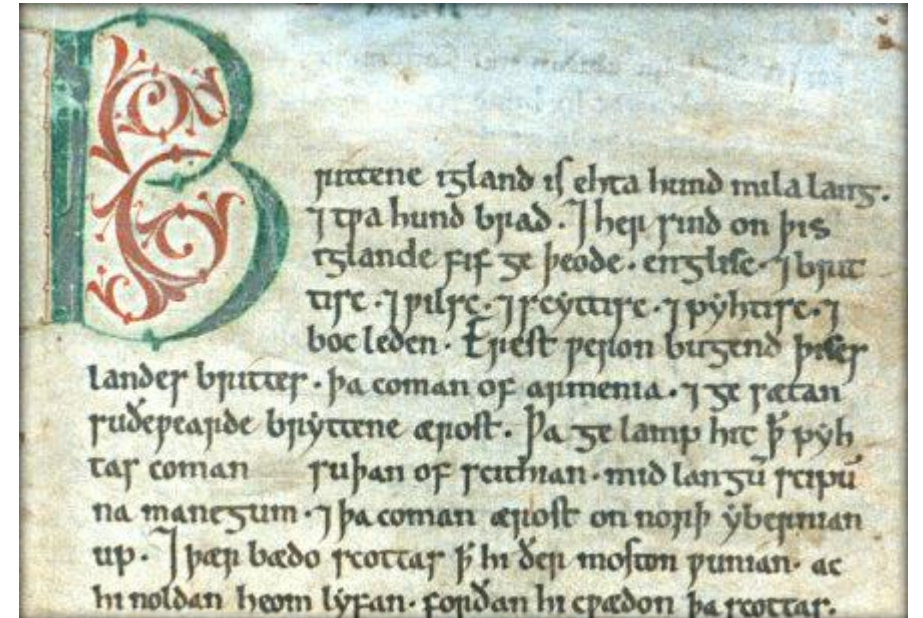 Brittene igland is ehta hund mila lang.
⁊ tƿa hund brad. ⁊ her sind on þis
iglande fif ge þeode. englisc. ⁊ brit
tisc. ⁊ ƿilsc. ⁊ scyttisc. ⁊ pyhtisc. ⁊
boc leden. Erest ƿeron bugend þises
landes brittes. þa coman of armenia. ⁊ ge sætan
suðeƿearde bryttene ærost. Þa ge lamp hit þ̄ pyh
tas coman suþan of scithian. mid langū scipū
na manegum. ⁊ þa coman ærost on norþ ybernian
up. ⁊ þær bædo scottas þ̄ hi ðer moston ƿunian. ac
hi noldan heom lyfan. forðan hi cƿædon þa scottas.